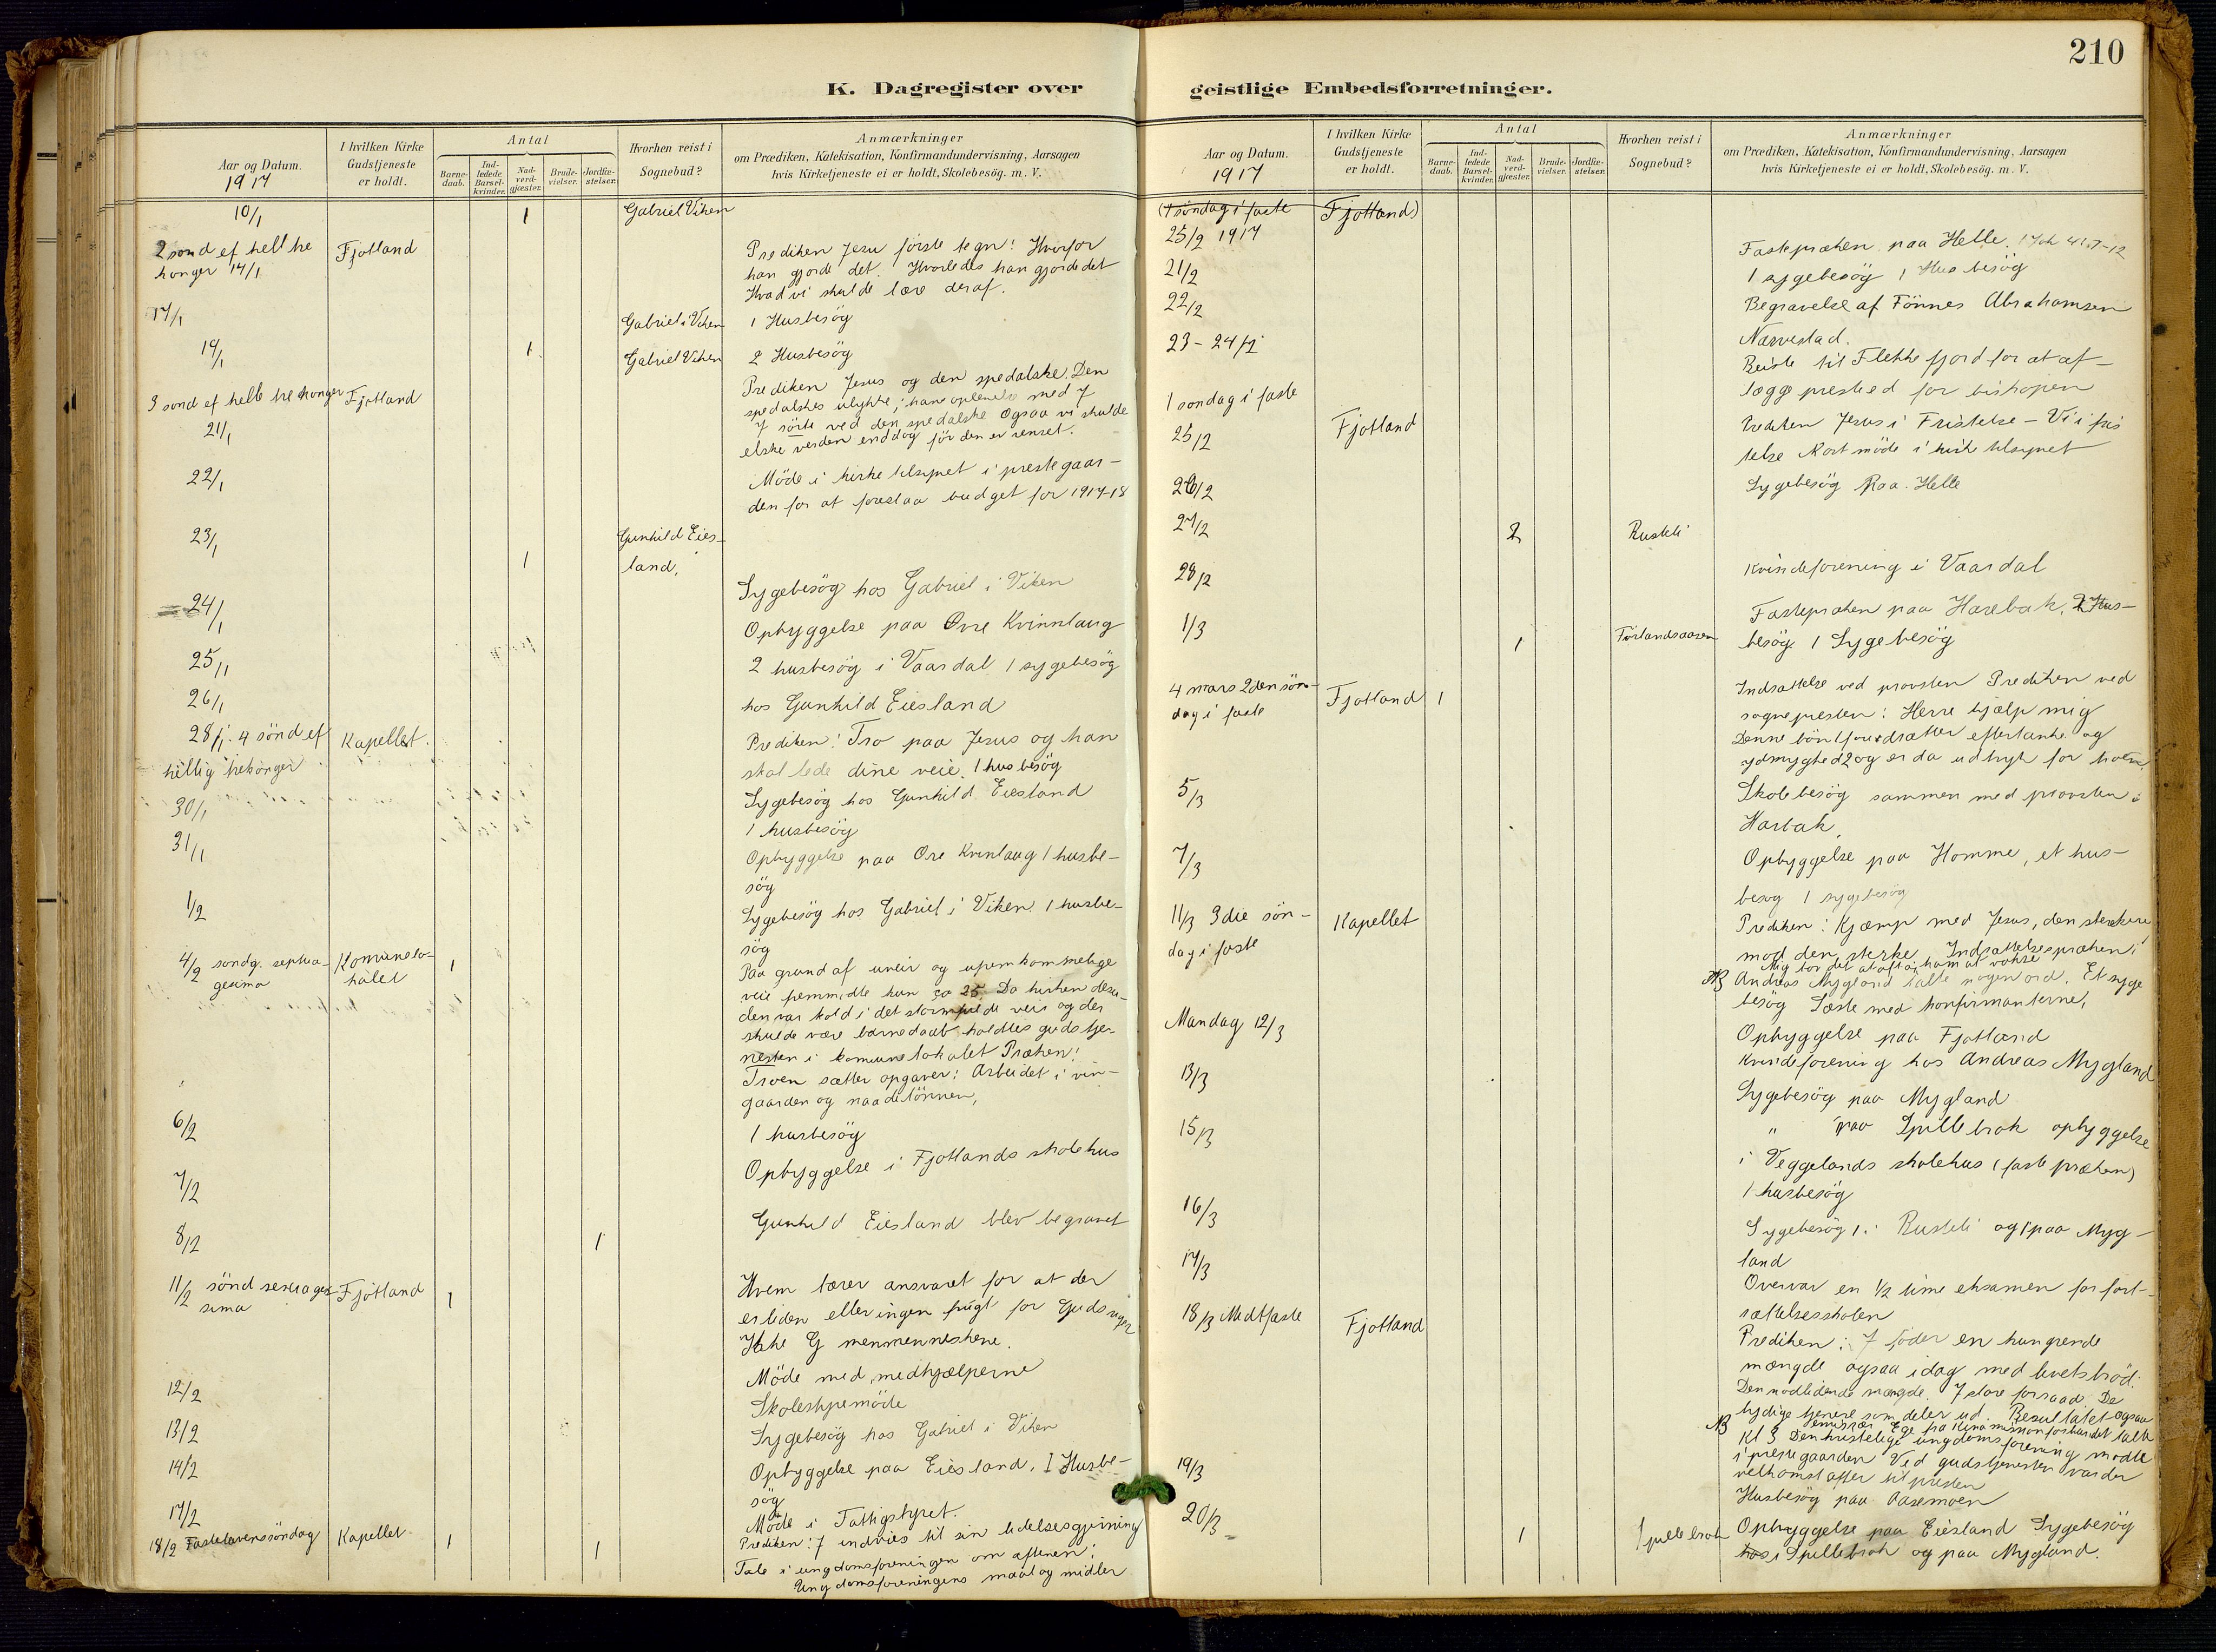 210
K. Dagregister over
Aar og Datum.
1917
I hvilken Kirke
Gudstjeneste
er holdt.
Antal
Barne-
daab.
Ind-
ledede
Barsel-
kvinder.
Nad-
verd-
gjæster.
Brude-
vielser.
Jordfæ-
stelser.
Hvorhen reist i
Sognebud?
Anmærkninger
om Prædiken, Katekisation, Konfirmandundervisning, Aarsagen
hvis Kirketjeneste ei er holdt, Skolebesøg. m. V.
10/1 1 Gabriel Viken
2 sond ef hell tre Fjotland Prediken Jesu förste tegn! Hvorfor
konger 14/1 han gjorde det. Hvorledes han gjorde det
Hvad vi skulde lære deraf.
17/1 Gabriel i Viken 1 Husbesög
19/1 1 Gabriel Viken 2 Husbesög
3 sond ef helle tre konger Fjotland Prediken Jesus og den spedalske. Den
21/1 spedalskes ulykke; hans oplevelse med J
J rörte ved den spedalske Ogsaa vi skulde
elske verden enddog för den er renset.
22/1 Möde i kirketilsynet i prestegaar-
den for at foreslaa budget for 1917-18
23/1 Gunhild Eies-
1 land,
24/1 Sygebesög hos Gabriel i Viken
Opbyggelse paa Övre Kvinnlaug
25/1 2 husbesög i Vaardal 1 sygebesög
26/1 hos Gunhild Eiesland
28/1. 4 sönd ef Kapellet. Prediken! Tro paa Jesus og han
hellig trekonger skal lede dine veie. 1 husbesög
30/1 Sygebesög hos Gunhild Eiesland
1 husbesög
31/1 Opbyggelse paa Öre Kvinlaug 1 husbe-
sög
1/2 Sygebesög hos Gabriel i Viken 1 husbe-
sög
4/2 sondg. septua- Komunelo- 1 Paa grund af uveir og ufremkommelige
gesima kalet veie fremmödte kun ca 25. Da kirken desu-
den var kold i det stormfulde veir og der
skulde være barnedaab holdtes gudstje-
nesten i kommunelokalet Præken!
Troen sætter opgaver: Arbeidet i vin-
gaarden og naadelönnen,
6/2 1 husbesög
7/2 Opbyggelse i Fjotlands skolehus
8/2 1 Gunhild Eiesland blev begravet
11/2 sönd sexages Fjotland 1 Hvem bærer ansvaret for at der
sima er liden eller ingen frugt for Guds rige
Ikke G men menneskene.
12/2 Möde med medhjælperne
Skolestyremöde
13/2 Sygebesög hos Gabriel i Viken
14/2 Opbyggelse paa Eiesland. I Husbe-
sög
17/2 Möde i Fattigstyret.
18/2 Fastelavenssöndag Kapellet 1 1 Prediken: J indvies til sin lidelsesgjerning
Tale i ungdomsforeningen om aftenen:
Ungdomsforeningens maal og midler
geistlige Embedsforretninger.
Aar og Datum.
1917
I hvilken Kirke
Gudstjeneste
er holdt.
Antal
Barne-
daab.
Ind-
ledede
Barsel-
kvinder.
Nad-
verd-
gjæster.
Brude-
vielser.
Jordfæ-
stelser.
Hvorhen reist i
Sognebud?
Anmærkninger
om Prædiken, Katekisation, Konfirmandundervisning, Aarsagen
hvis Kirketjeneste ei er holdt, Skolebesøg. m. V.
(1 söndag i faste Fjotland)
25/2 1917
21/2 Fastepræken paa Helle.
1 sygebesög 1 Husbesög
22/2 Begravelse af Tönnes Abrahamsen
Narvestad.
23-24/2 Reiste til Flekkefjord for at af-
lægge presteed for bishopen
1 sondag i faste Fjotland Prediken Jesus i Fristelse - Vi i fris
25/2 telse Kort möde i kirketilsynet
26/2 Sygebesög Paa Helle
27/2 2 Rusteli
28/2 Kvindeforening i Vaardal
1/3 Fastepræken paa Harebak, 2 Hus-
1 Förlandsaasen besög 1 Sygebesög
4 mars 2den sön- Fjotland 1 Indsættelse ved provsten Prediken ved
dag i faste sognepresten: Herre hjælp mig
Denne bön 1 forudsætter eftertanke og
ydmyghed 2 og er da udtryk for troen.
5/3 Skolebesög sammen med provsten i
Harbak,
7/3 Opbyggelse paa Homme, et hus-
besög 1 sygebesög
11/3 3die sön- Kapellet Prediken: Kjæmp med Jesus, den sterkere
dag i faste mod den sterke Indsættelsespræken:
Mig bör det at aftai, ham at vokse
NB Andreas Mygland talte nogen ord. Et syge
besög Læste med konfirmanterne,
Mandag 12/3 Opbyggelse paa Fjotland
Kvindeforening hos Andreas Mygland
13/3 Sygebesög paa Mygland
15/3 " paa Spillebrok opbyggelse
i Veggelands skolehus (faste præken)
1 husbesög
16/3 Sygebesög 1 i Rusteli og 1 paa Myg-
land
17/3 Overvar en 1/2 time eksamen for fort-
sættelsesskolen
18/3 Midtfaste Fjotland Prediken: J föder en hungrende
mængde ogsaa idag med livets bröd:
Den nödlidende mængde. J store forraad De
lydige tjenere som deler ud. Resultatet ogsaa
Emissær Ege fra Kinamissionforbundet talte
NB Kl 3 Den kristelige ungdomsforening mödte
i prestegaarden Ved gudstjenesten var der
velkomst aftes til presten
19/3 Husbesög paa Aasemoen
20/3 1 Spillebrok Opbyggelse paa Eiesland Sygebesög
hos i Spillebrok og paa Mygland.